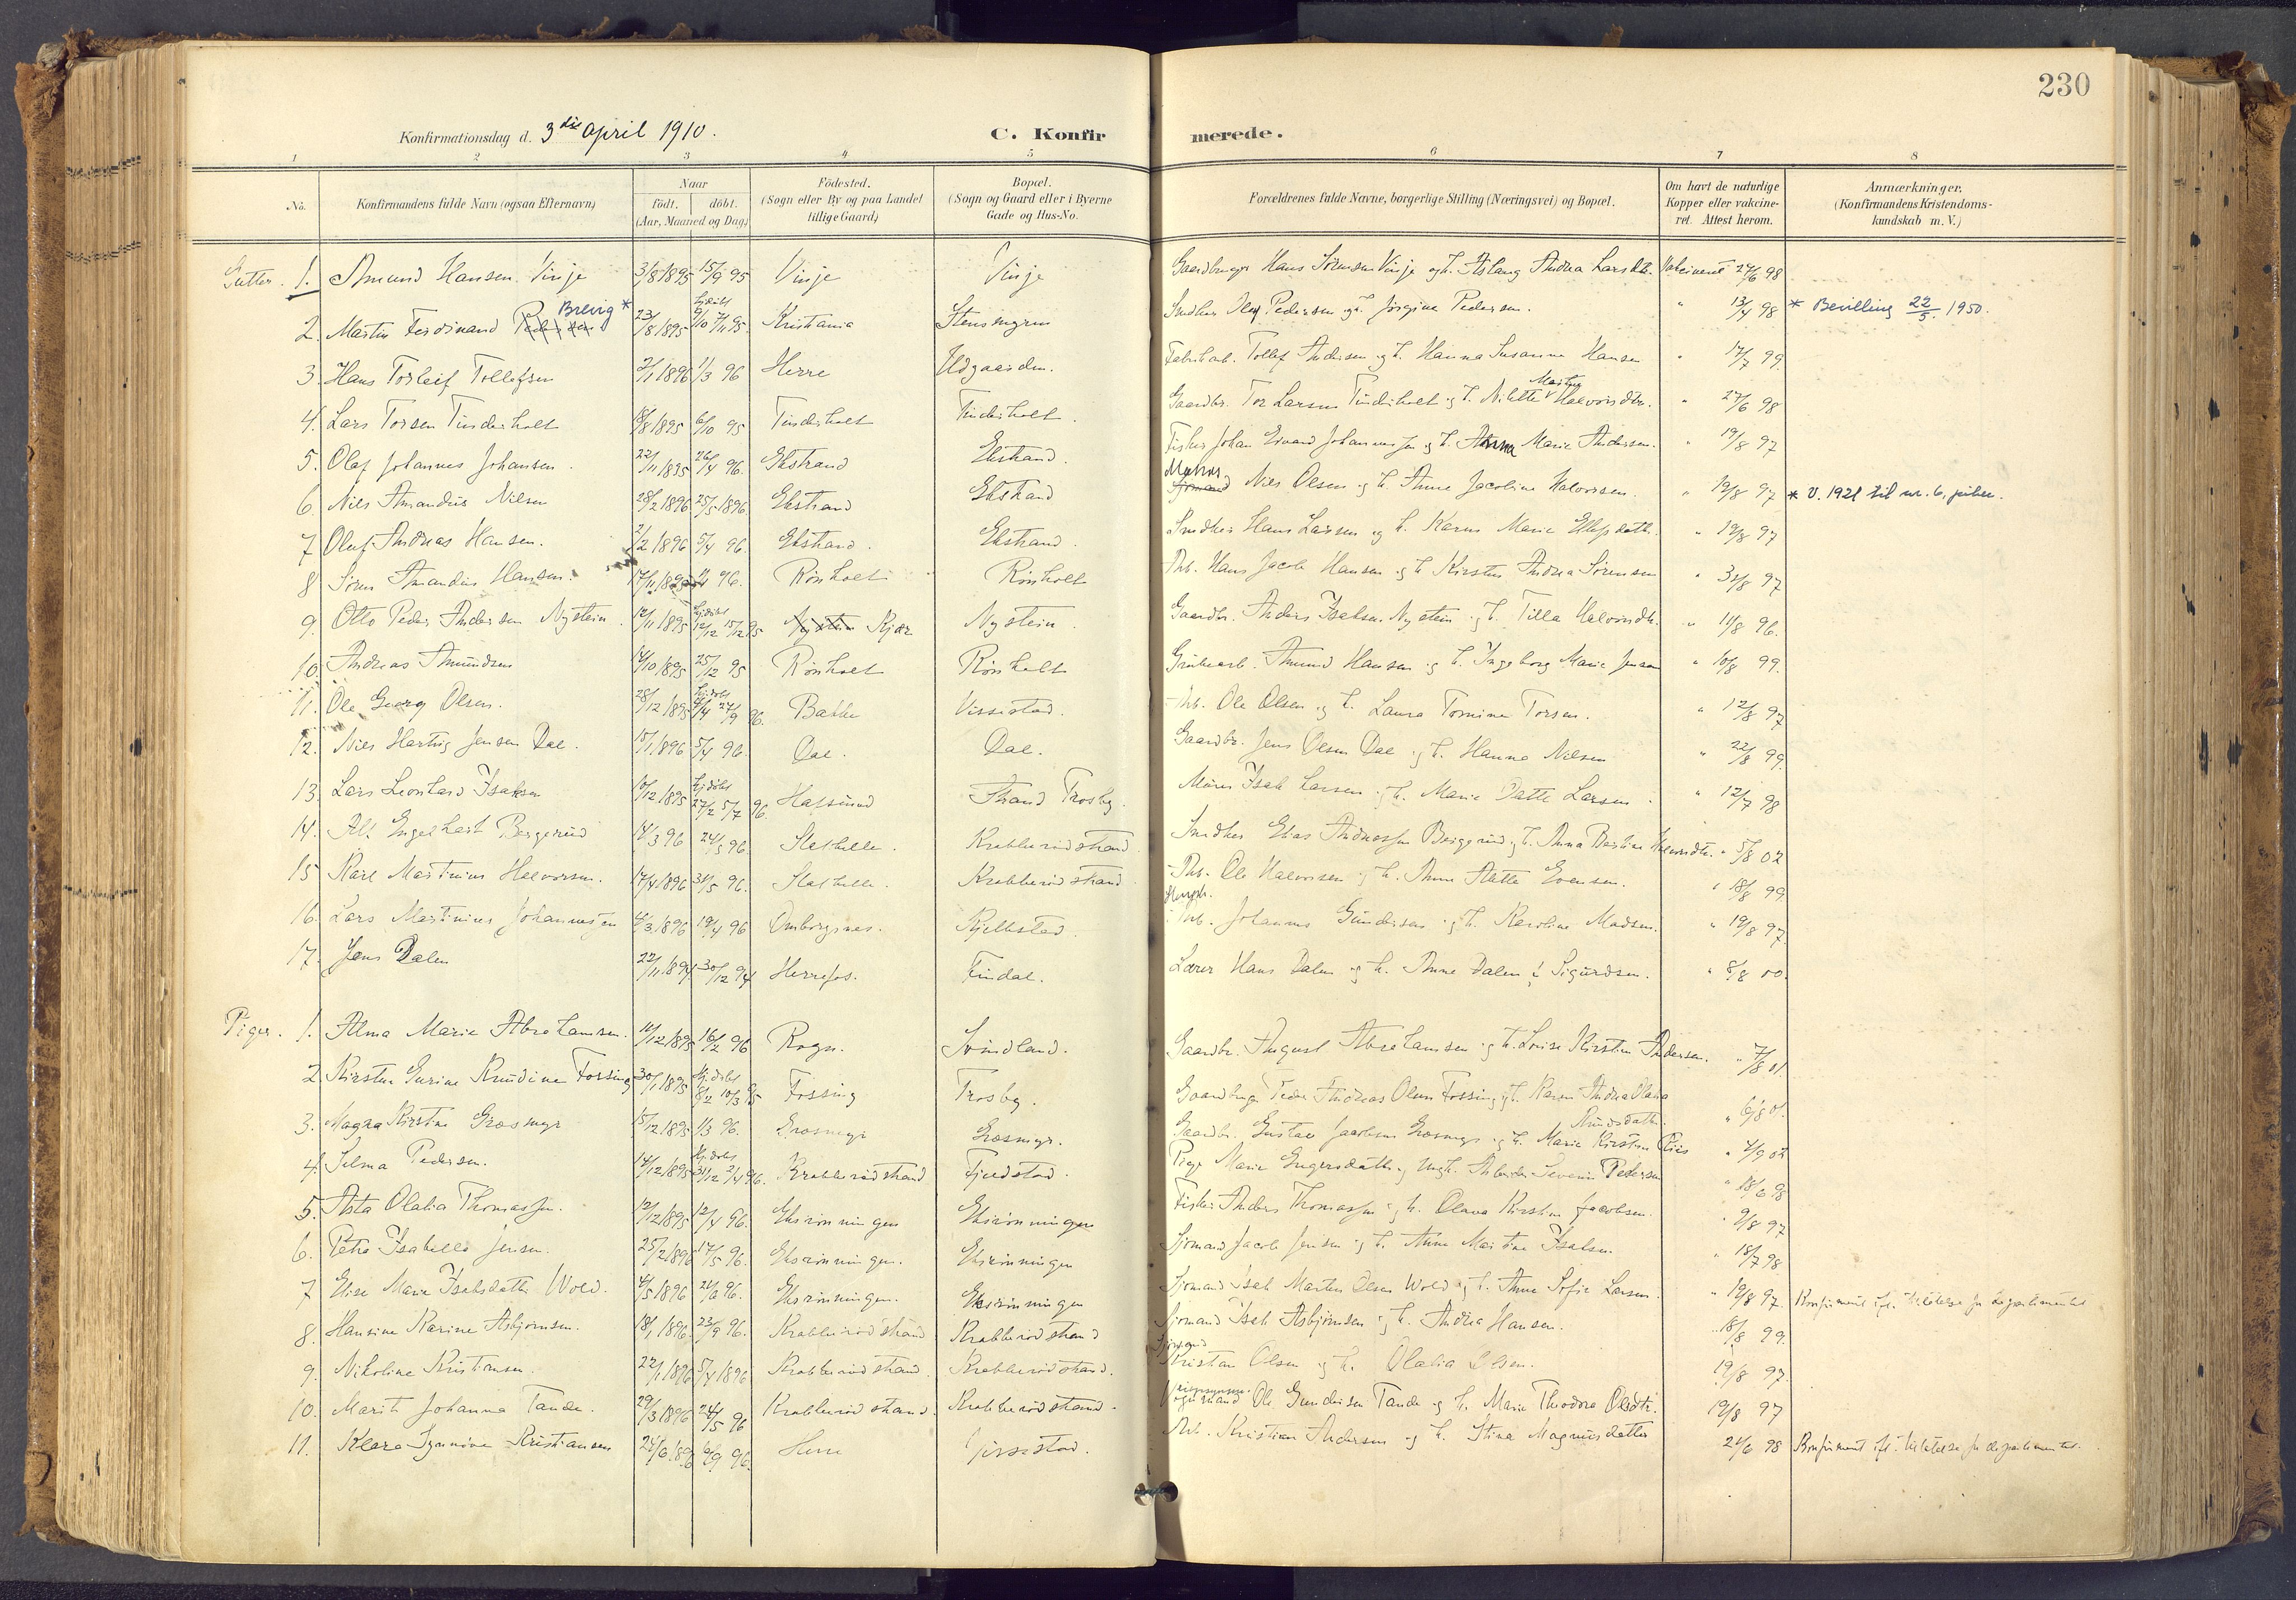 230
Konfirmationsdag d. 3die April 1910.
C. Konfirmerede.
1 2 3 4 5 6 7 8
No.
Konfirmandens fulde Navn (ogsaa Efternavn)
Naar født. døbt. (Aar, Maaned og Dag)
Fødested. (Sogn eller By og paa Landet tillige Gaard)
Bopæl. (Sogn og Gaard eller i Byerne Gade og Hus-No.
Forældrenes fulde Navne, borgerlige Stilling (Næringsvei) og Bopæl.
Om havt de naturlige Kopper eller vakcineret. Attest herom.
Anmærkninger. (Konfirmandens Kristendomskundskab m. V.)
Gutter. 1. Amund Hansen Vinje 3/8 1895 15/9 95 Vinje Vinje Gaardbruger Hans Sørensen Vinje og h. Aslaug Andrea Larsdtr. Vakcineret 24/6 98
2. Martin Ferdinand Pedersen Brevig * 23/8 1895 Kristiania Stensmyren Snedker Oluf Pedersen og h. Jørgine Pedersen. " 13/4 98 * Bevilling 22/5. 1950.
3. Hans Torleif Tollefsen 2/1 1896 1/3 96 Herre Udgaarden. Fabrikarb. Tollef Andersen og h. Hanna Susanne Hansen " 17/7 99.
4. Lars Torsen Tinderholt 18/8 1895 6/10 95 Tinderholt Tinderholt Gaardbr. Tor Larsen Tinderholt og h. Nilette Martine Halvorsdtr. " 27/6 98
5. Olaf Johannes Johansen. 22/11 1895 26/4 96. Ekstrand Ekstrand. Fisker Johan Edvard Johannessen og h. Anna Marie Andersen. " 19/8 97
6. Nils Amandus Nilsen 28/2 1896 25/5 1896 Ekstrand Ekstrand Sjømand Nils Olsen og h. Anne Jacoline Halvorsen. " 19/8 97 * V. 1921 til nr. 6,
7 Oluf Andreas Hansen. 2/2 1896 5/4 96. Ekstrand. Ekstrand. Snedker Hans Larsen og h. Karen Marie Ellefsdatter. " 19/8 97
8 Søren Amandus Hansen. 17/11 1895 96. Rönholt Rönholt Arb. Hans Jacob Hansen og h. Kirsten Andrea Sørensen " 31/8 97
9. Otto Peder Andersen Nystein. 12/11 1895 hj.døbt 12/12 15/12 95 Nystein Kjær Nystein. Gaardbr. Anders Isaksen Nystein og h. Tilla Halvorsdtr. " 11/8 96.
10. Andreas Amundsen 14/10 1895 25/12 95 Rönholt Rönholt Grubearb. Amund Hansen og h. Ingeborg Marie Jensen " 10/8 99.
11. Ole Georg Olsen. 28/12 1895 Bakke Vissestad. Arb. Ole Olsen og h. Laura Tomine Torsen. " 12/8 97
12. Nils Hartvig Jensen Dal. 15/1 1896 5/4 96. Dal. Dal. Gaardbr. Jens Olsen Dal og h. Hanna Nilsen " 22/8 99.
13. Lars Leonhard Isaksen 10/12 1895 hj.døbt 27/2 5/7 96. Hafsund Strand Trosby. Murer Isak Larsen og h. Marie Datte Larsen. " 12/7 98
14. Alf Engelhart Bergerud 14/3 96 24/5 96. Stathelle. Krabberødstrand Snedker Elias Andreassen Berggrud og h. Anna Bertine Halvorsdtr. " 5/8 02
15 Karl Martinius Halvorsen. 17/4 1896 31/5 96. Stathelle. Krabberødstrand Arb. Ole Halvorsen og h. Anne Aatte Evensen. " 18/8 99
16. Lars Martinius Johannessen 4/3 1896 19/4 96 Omborgsnes. Kjellestad. Arb. Johannes Gundersen og h. Karoline Madsen. " 19/8 97
17. Jens Dalen 22/11 1894 30/12 94 Herrefos. Findal. Lærer Hans Dalen og h. Anne Dalen f. Sigurdsen. " 8/8 00.
Piger. 1. Alma Marie Abrahamsen. 11/12 1895 16/2 96 Rogn. Svindland. Gaardbr. August Abrahamsen og h. Louise Kirstin Andersen. " 7/8 01.
2. Kirsten Gurine Knudine Fossing 30/1 1895 hj.døbt 8/2 10/3 95 Fossing Trosby. Gaardbruger Peder Andreas Olsen Fossing og h. Karen Andrea Olalia Knudsdatter. " 6/8 01.
3. Magna Kirstine Græsmyr 15/12 1895 1/3 96. Græsmyr Græsmyr. Gaardbr. Gustav Jacobsen Græsmyr og h. Marie Kirstine Riis " 4/9 02
4. Selma Pedersen. 14/12 1895 hj.døbt 31/12 2/4 96. Krabberødstrand Fjeldstad. Pige Marie Engersdatter og Ungk. Arbeider Severin Pedersen " 18/6 98
5. Asta Olalia Thomassen. 12/12 1895 12/4 96. Eksrønningen Eksrønningen Fisker Anders Thomassen og h. Olava Kirstine Jacobsen. " 9/8 97
6. Petra Isabella Jensen. 25/2 1896 17/5 96. Eksrønningen. Eksrønningen Sjømand Jacob Jensen og h. Anne Martine Isaksen. " 18/7 98
7 Elise Marie Isaksdatter Wold. 4/5 1896 96. Eksrønningen. Eksrønningen Sjømand Isak Martin Olsen Wold og h. Anne Sofie Larsen. " 19/8 97. Konfirmeret ifl. tilladelse fr departementet
8. Hansine Karine Asbjørnsen. 18/1 1896. 23/9 96. Krabberødstrand Krabberødstrand Sjømand Isak Asbjørnsen og h. Andrea Hansen. " 18/8 99.
9. Nikoline Kristiansen. 22/1 1896 5/4 1896 Krabberødstrand. Krabberødstrand. Sjømand Kristian Olsen og h. Olalia Olsen. 19/8 97.
10. Marit Johanna Tande. 29/3 1896 24/5 96 Krabberødstrand. Krabberødstrand. Ole Gundersen Tande og h. Marie Theodora Olsdtr. 19/8 97
11. Klara Synnøve Kristiansen 24/6 1896 6/9 96. Herre Vissestad. Arb. Kristian Andersen og h. Stina Magnusdatter 24/6 98 Konfirmeret ifl. tilladelse fr departementet.